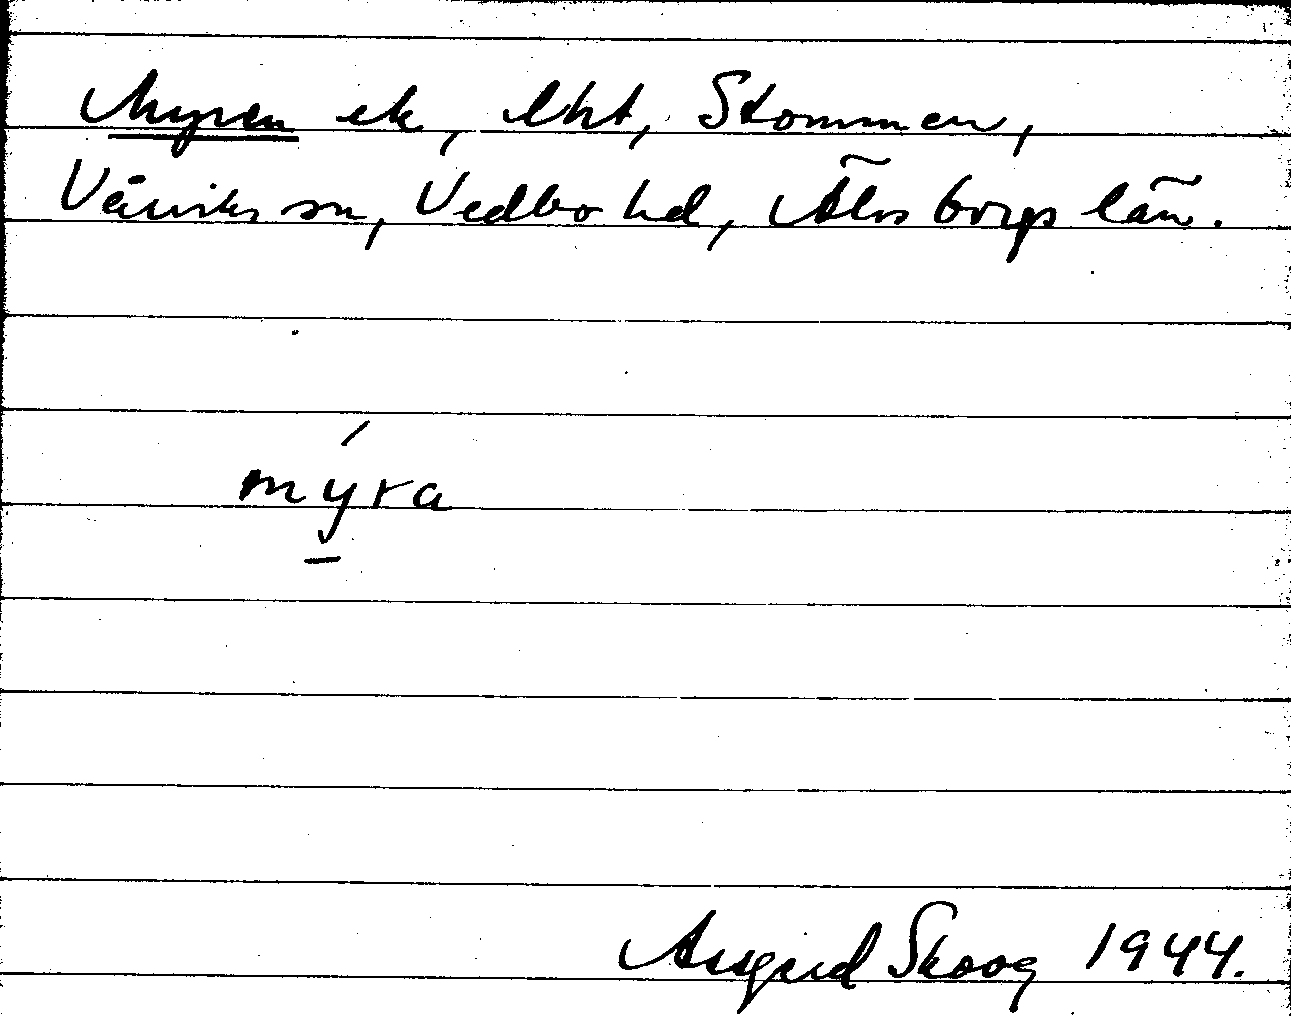 Myren ek, lht, Stommen,
Vårviks sn, Vedbo hd, Älvsborgs län.
mýra
Skoog 1944.